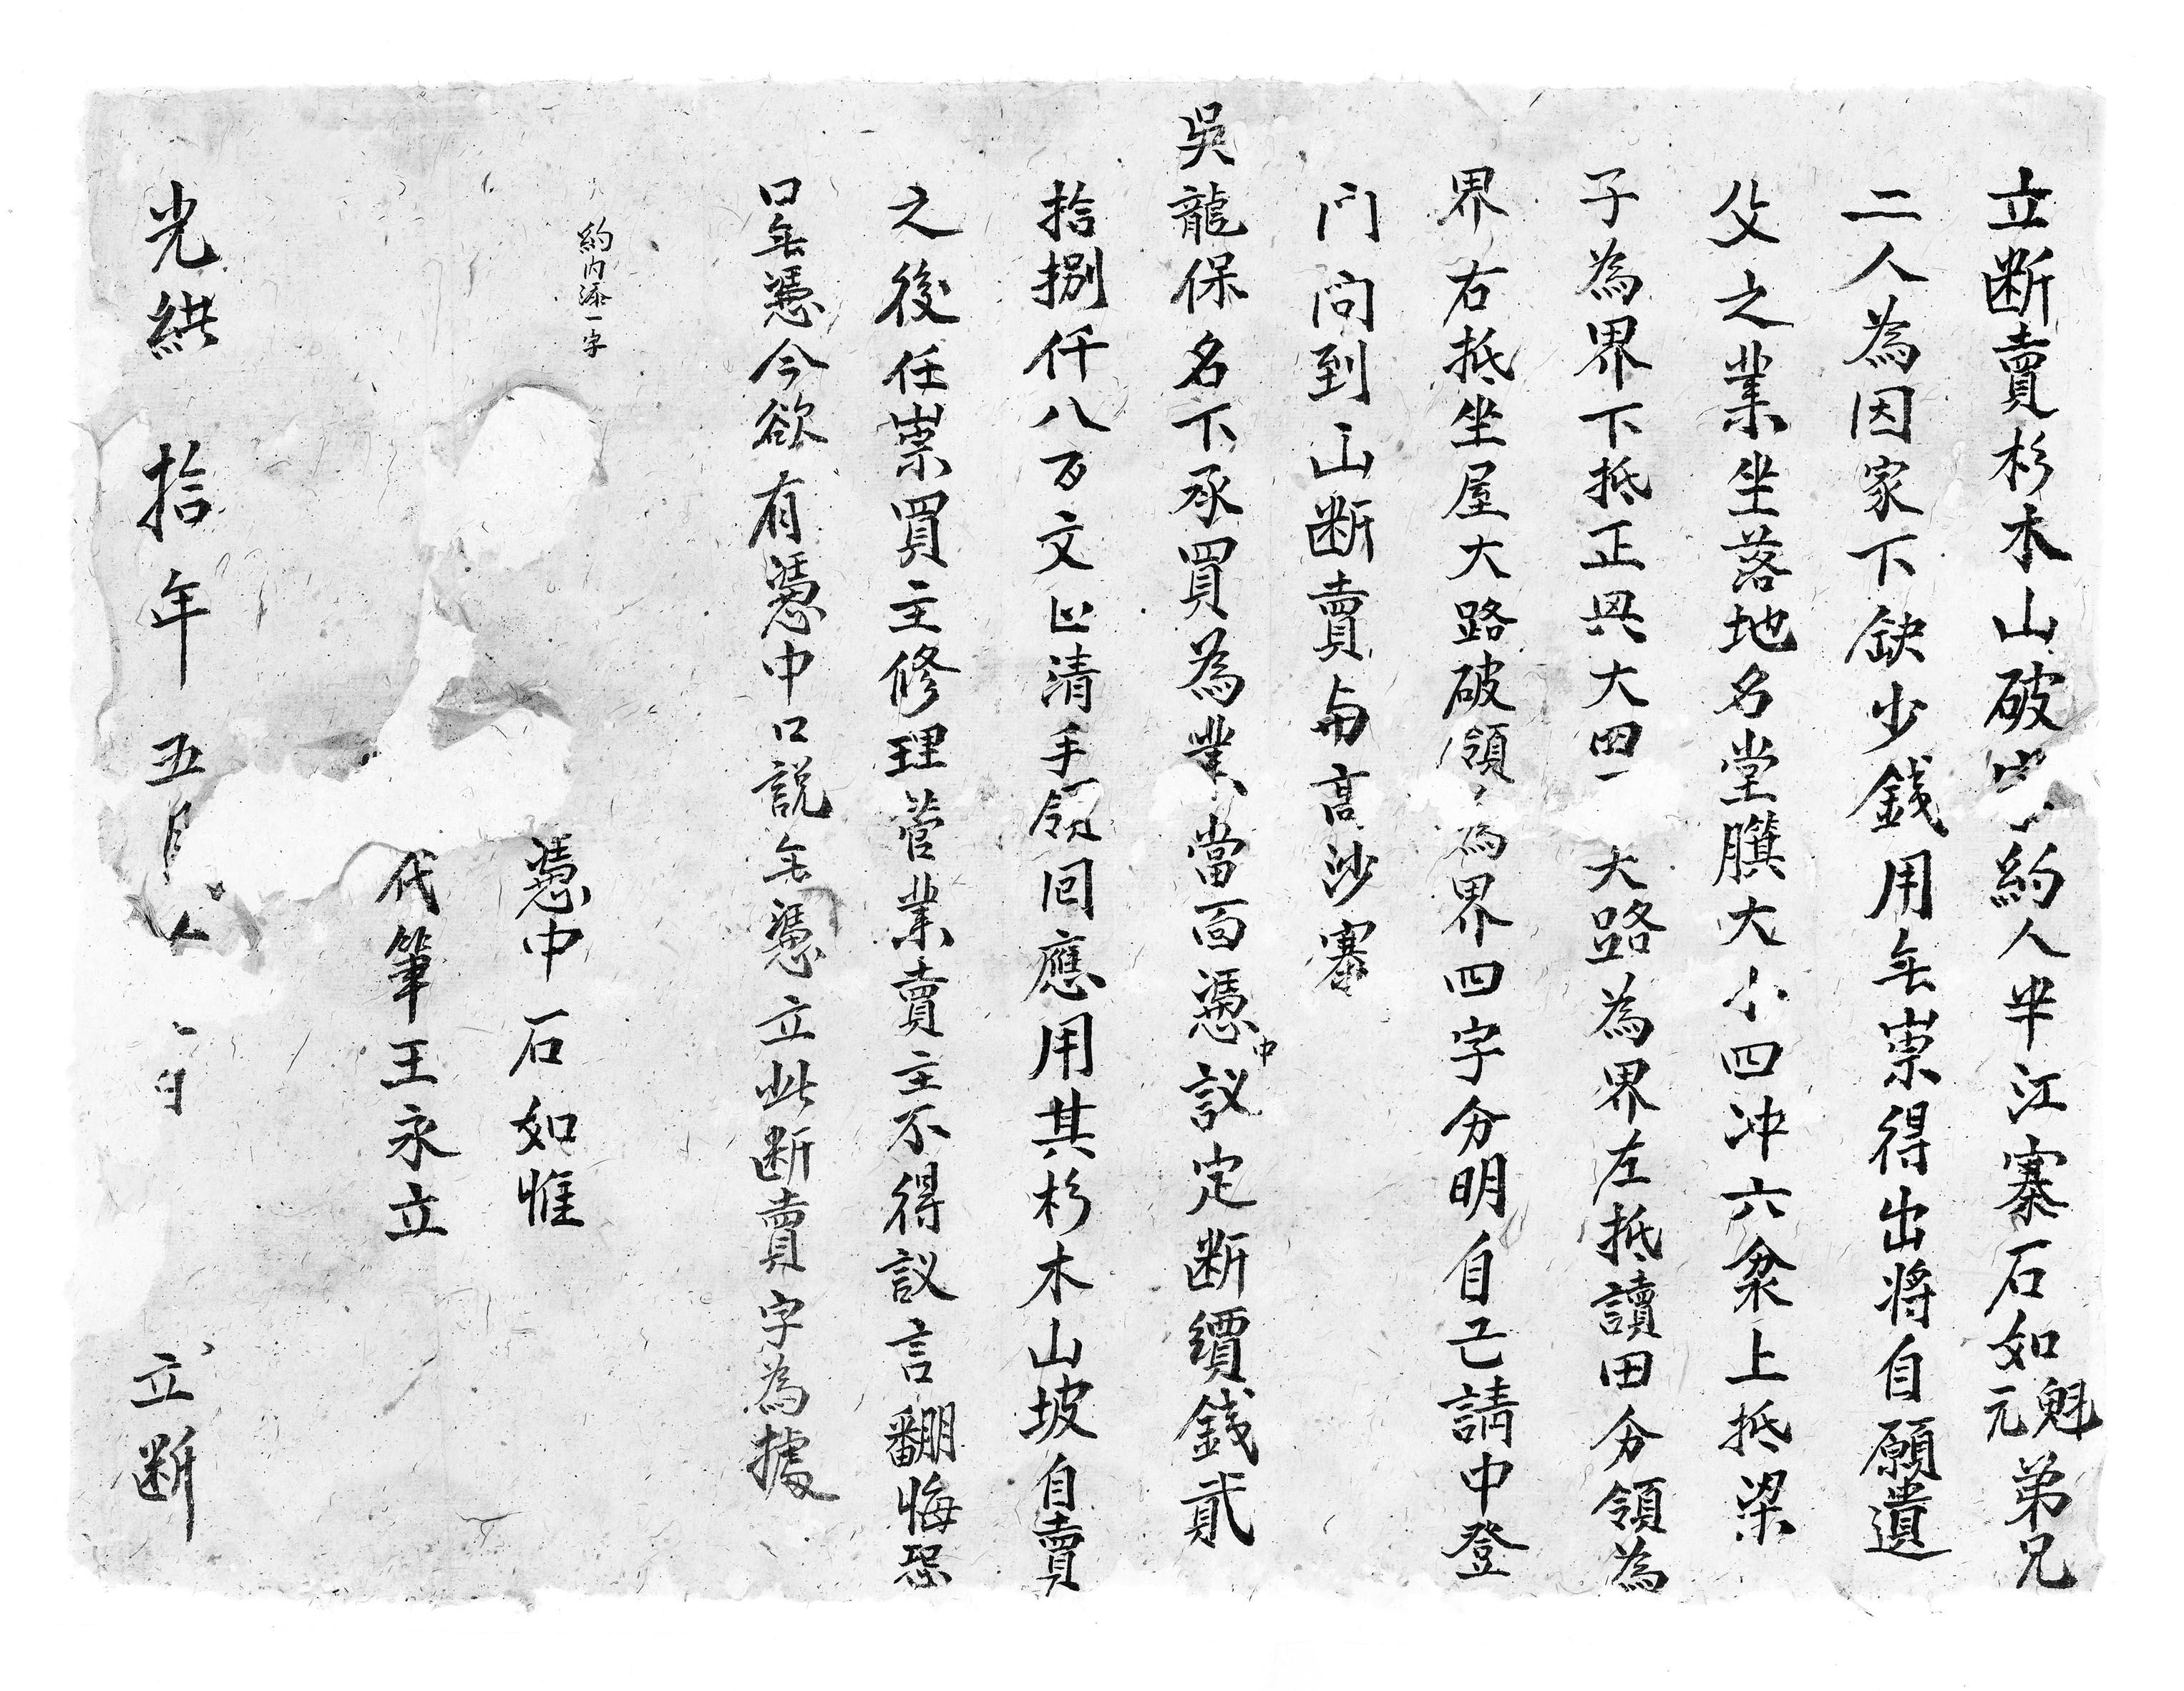 立断賣杉木山破字約人半江寨石如魁元弟兄
二人為因家下缺少錢用無祟得出将自願遺
父之業坐落地名堂䐡大小四冲六衆上抵梁
子為界下抵正岊大田大路為界左抵讀田分領為
界右抵坐屋大路破領為界四字分明自己請中登
门问到山断賣与高沙寨
吳龍保名下承買為業當面憑中議定断價錢貳
拾捌仟八百文凸清手領囘應用其杉木山坡自賣
之後任祟買主修理菅業賣主不得議言翻悔恐
口無憑今欲有憑中口説無憑立此断賣字為據
約内添一字
憑中石如惟
代筆王永立
光緒拾年五月日立断